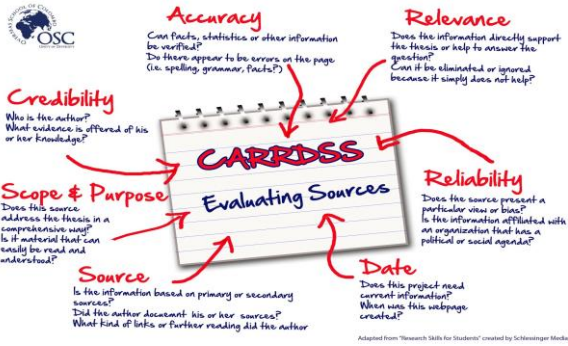 OVERSEAS SCHOOL OF COLOMBO
OSC
Accuracy
Can facts, statistics or other information
be verified?
Do there appear to be errors on the page
(i.e. spelling, grammar, facts?)
Relevance
Does the information directly support
the thesis or help to answer the
question?
Can it be eliminated or ignored
because it simply does not help?
Credibility
Who is the author?
What evidence is offered of his
or her knowledge?
CARRDSS
Evaluating Sources
Reliability
Does the source present a
particular view or bias?
Is the information affiliated with
an organization that has a
political or social agenda?
Scope & Purpose
Does this source
address the thesis in a
comprehensive way?
Is it material that can
easily be read and
understood?
Source
Is the information based on primary or secondary
sources?
Did the author document his or her sources?
What kind of links or further reading did the author
Date
Does this project need
current information?
When was this webpage
created?
Adapted from "Research Skills for Students" created by Schlessinger Media